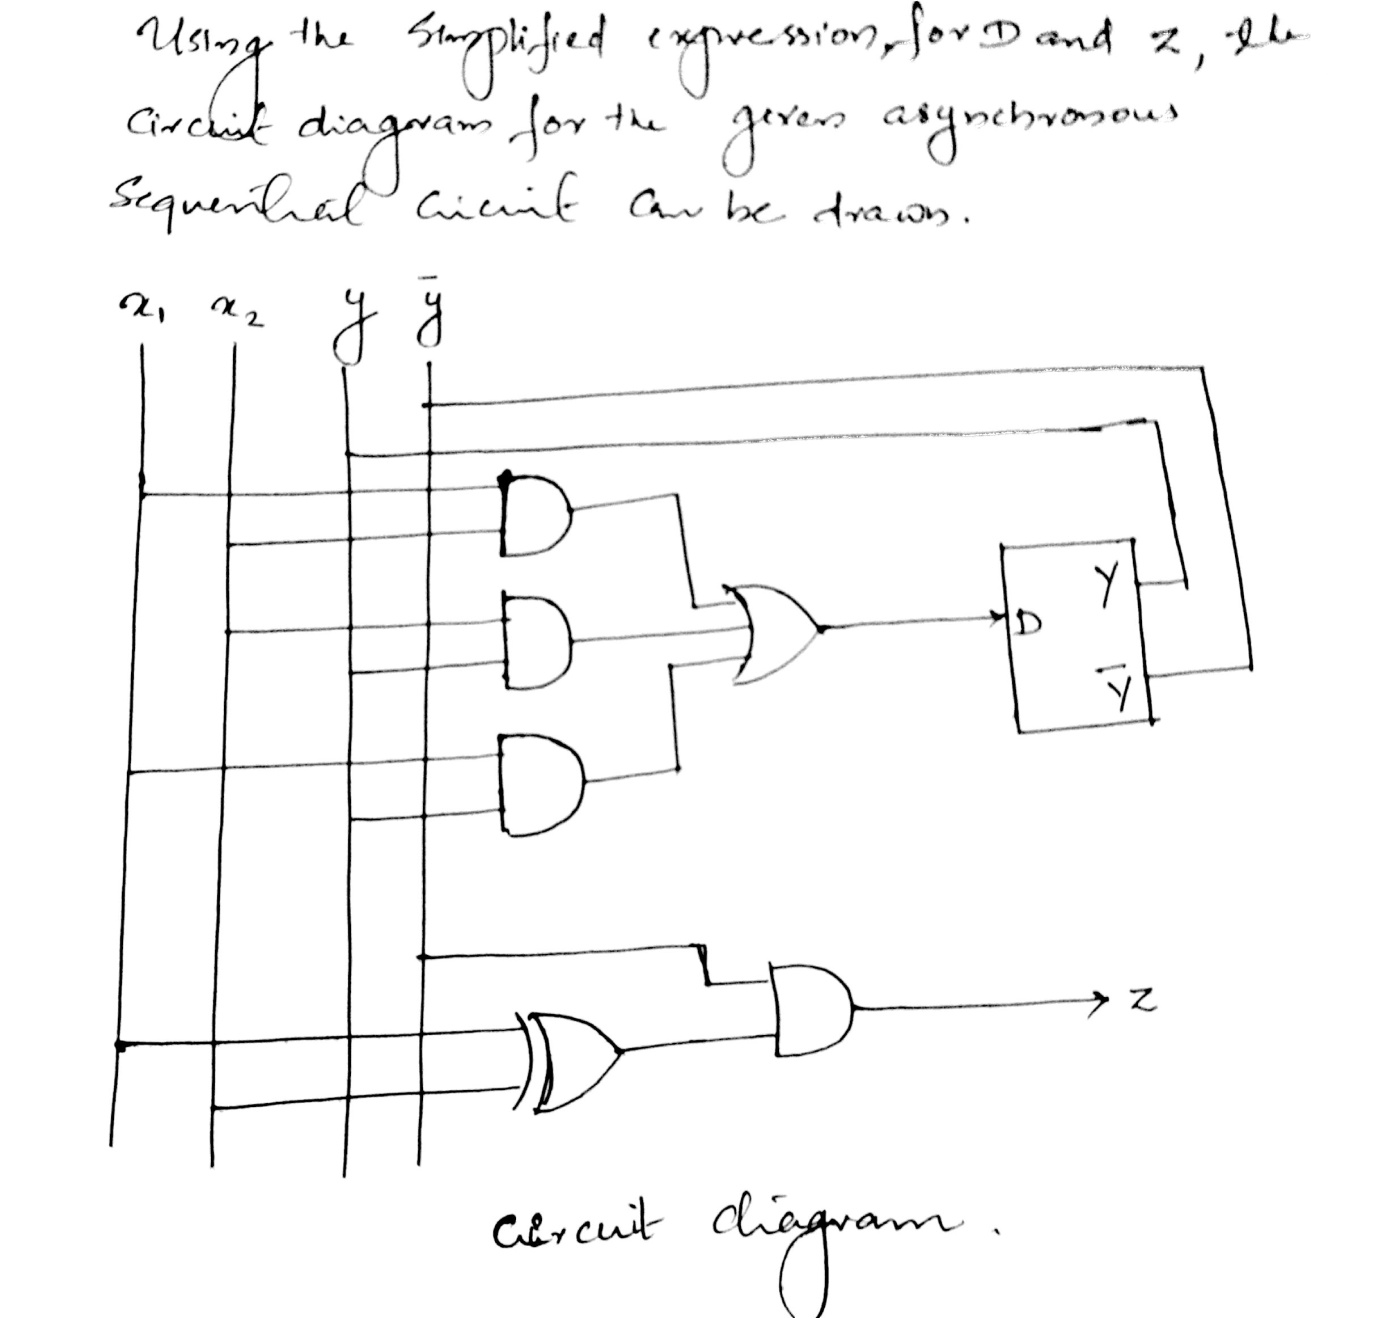 Using the simplified expression, for D and z, the
circuit diagram for the given asynchronous
sequential circuit can be drawn.
x₁ x₂ y ȳ
Y
D
Ȳ
z
circuit diagram.